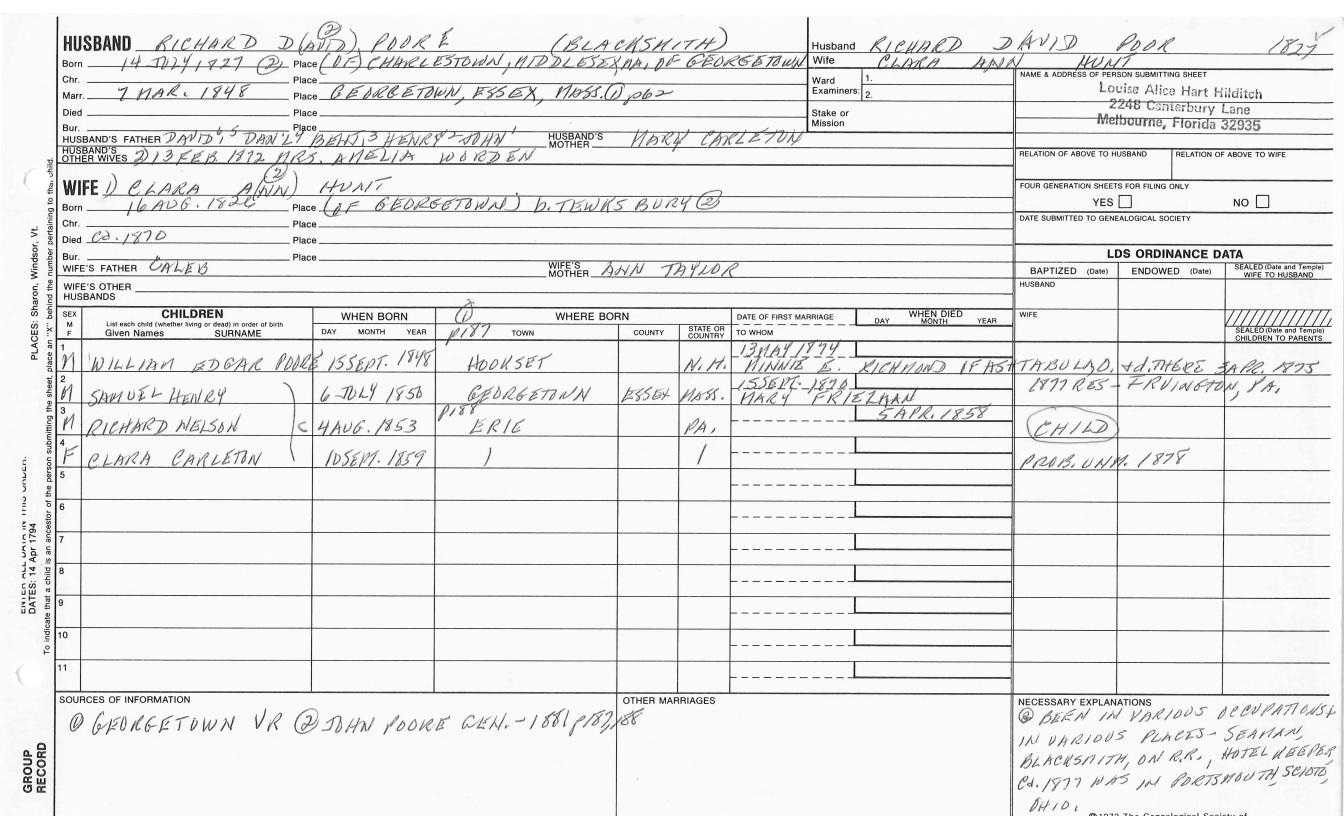 HUSBAND RICHARD D(AVID)② POORE (BLACKSMITH)
Born 14 JULY, 1827 ② Place (OF) CHARLESTOWN, MIDDLESEX, MA. OF GEORGETOWN
Chr. Place
Marr. 7 MAR. 1848 Place GEORGETOWN, ESSEX, MASS. ① p62
Died Place
Bur. Place
HUSBAND'S FATHER DAVID6, 5 DAN'L4 BENJ.3 HENRY2 JOHN1 HUSBAND'S MOTHER MARY CARLETON
HUSBAND'S OTHER WIVES 2) 13 FEB 1872 MRS. AMELIA WORDEN
Husband RICHARD DAVID POOR 1827
Wife CLARA ANN HUNT
Ward Examiners: 1.
2.
Stake or Mission
NAME & ADDRESS OF PERSON SUBMITTING SHEET
Louise Alice Hart Hilditch
2248 Canterbury Lane
Melbourne, Florida 32935
RELATION OF ABOVE TO HUSBAND RELATION OF ABOVE TO WIFE
FOUR GENERATION SHEETS FOR FILING ONLY
YES NO
DATE SUBMITTED TO GENEALOGICAL SOCIETY
WIFE 1) CLARA A(NN)② HUNT
Born 16 AUG. 1826 Place (OF GEORGETOWN) b. TEWKSBURY ②
Chr. Place
Died Ca. 1870 Place
Bur. Place
WIFE'S FATHER CALEB WIFE'S MOTHER ANN TAYLOR
WIFE'S OTHER HUSBANDS
LDS ORDINANCE DATA
BAPTIZED (Date) ENDOWED (Date) SEALED (Date and Temple) WIFE TO HUSBAND
HUSBAND
WIFE
SEALED (Date and Temple) CHILDREN TO PARENTS
SEX M F CHILDREN List each child (whether living or dead) in order of birth Given Names SURNAME WHEN BORN DAY MONTH YEAR ① p187 WHERE BORN TOWN COUNTY STATE OR COUNTRY DATE OF FIRST MARRIAGE TO WHOM WHEN DIED DAY MONTH YEAR
1 M WILLIAM EDGAR POORE 15 SEPT. 1848 HOOKSET N.H. 13 MAY 1874
MINNIE E. RICHMOND OF ASHTABULA, O. & d. THERE 3 APR. 1875
2 M SAMUEL HENRY 6 JULY 1850 GEORGETOWN ESSEX MASS. 15 SEPT. 1870
MARY FRIEZMAN 1877 RES - IRVINGTON, PA.
3 M RICHARD NELSON C 4 AUG. 1853 p188 ERIE PA. 5 APR. 1858 CHILD
4 F CLARA CARLETON 10 SEPT. 1859 PROB. UNM. 1878
5
6
7
8
9
10
11
SOURCES OF INFORMATION
① GEORGETOWN VR ② JOHN POORE GEN. - 1881 p187,188
OTHER MARRIAGES
NECESSARY EXPLANATIONS
② BEEN IN VARIOUS OCCUPATIONS &
IN VARIOUS PLACES - SEAMAN,
BLACKSMITH, ON R.R., HOTEL KEEPER,
Ca. 1877 WAS IN PORTSMOUTH, SCIOTO,
OHIO.
PLACES: Sharon, Windsor, Vt.
DATES: 14 Apr 1794
To indicate that a child is an ancestor of the person submitting the sheet, place an "X" behind the number pertaining to that child.
GROUP RECORD